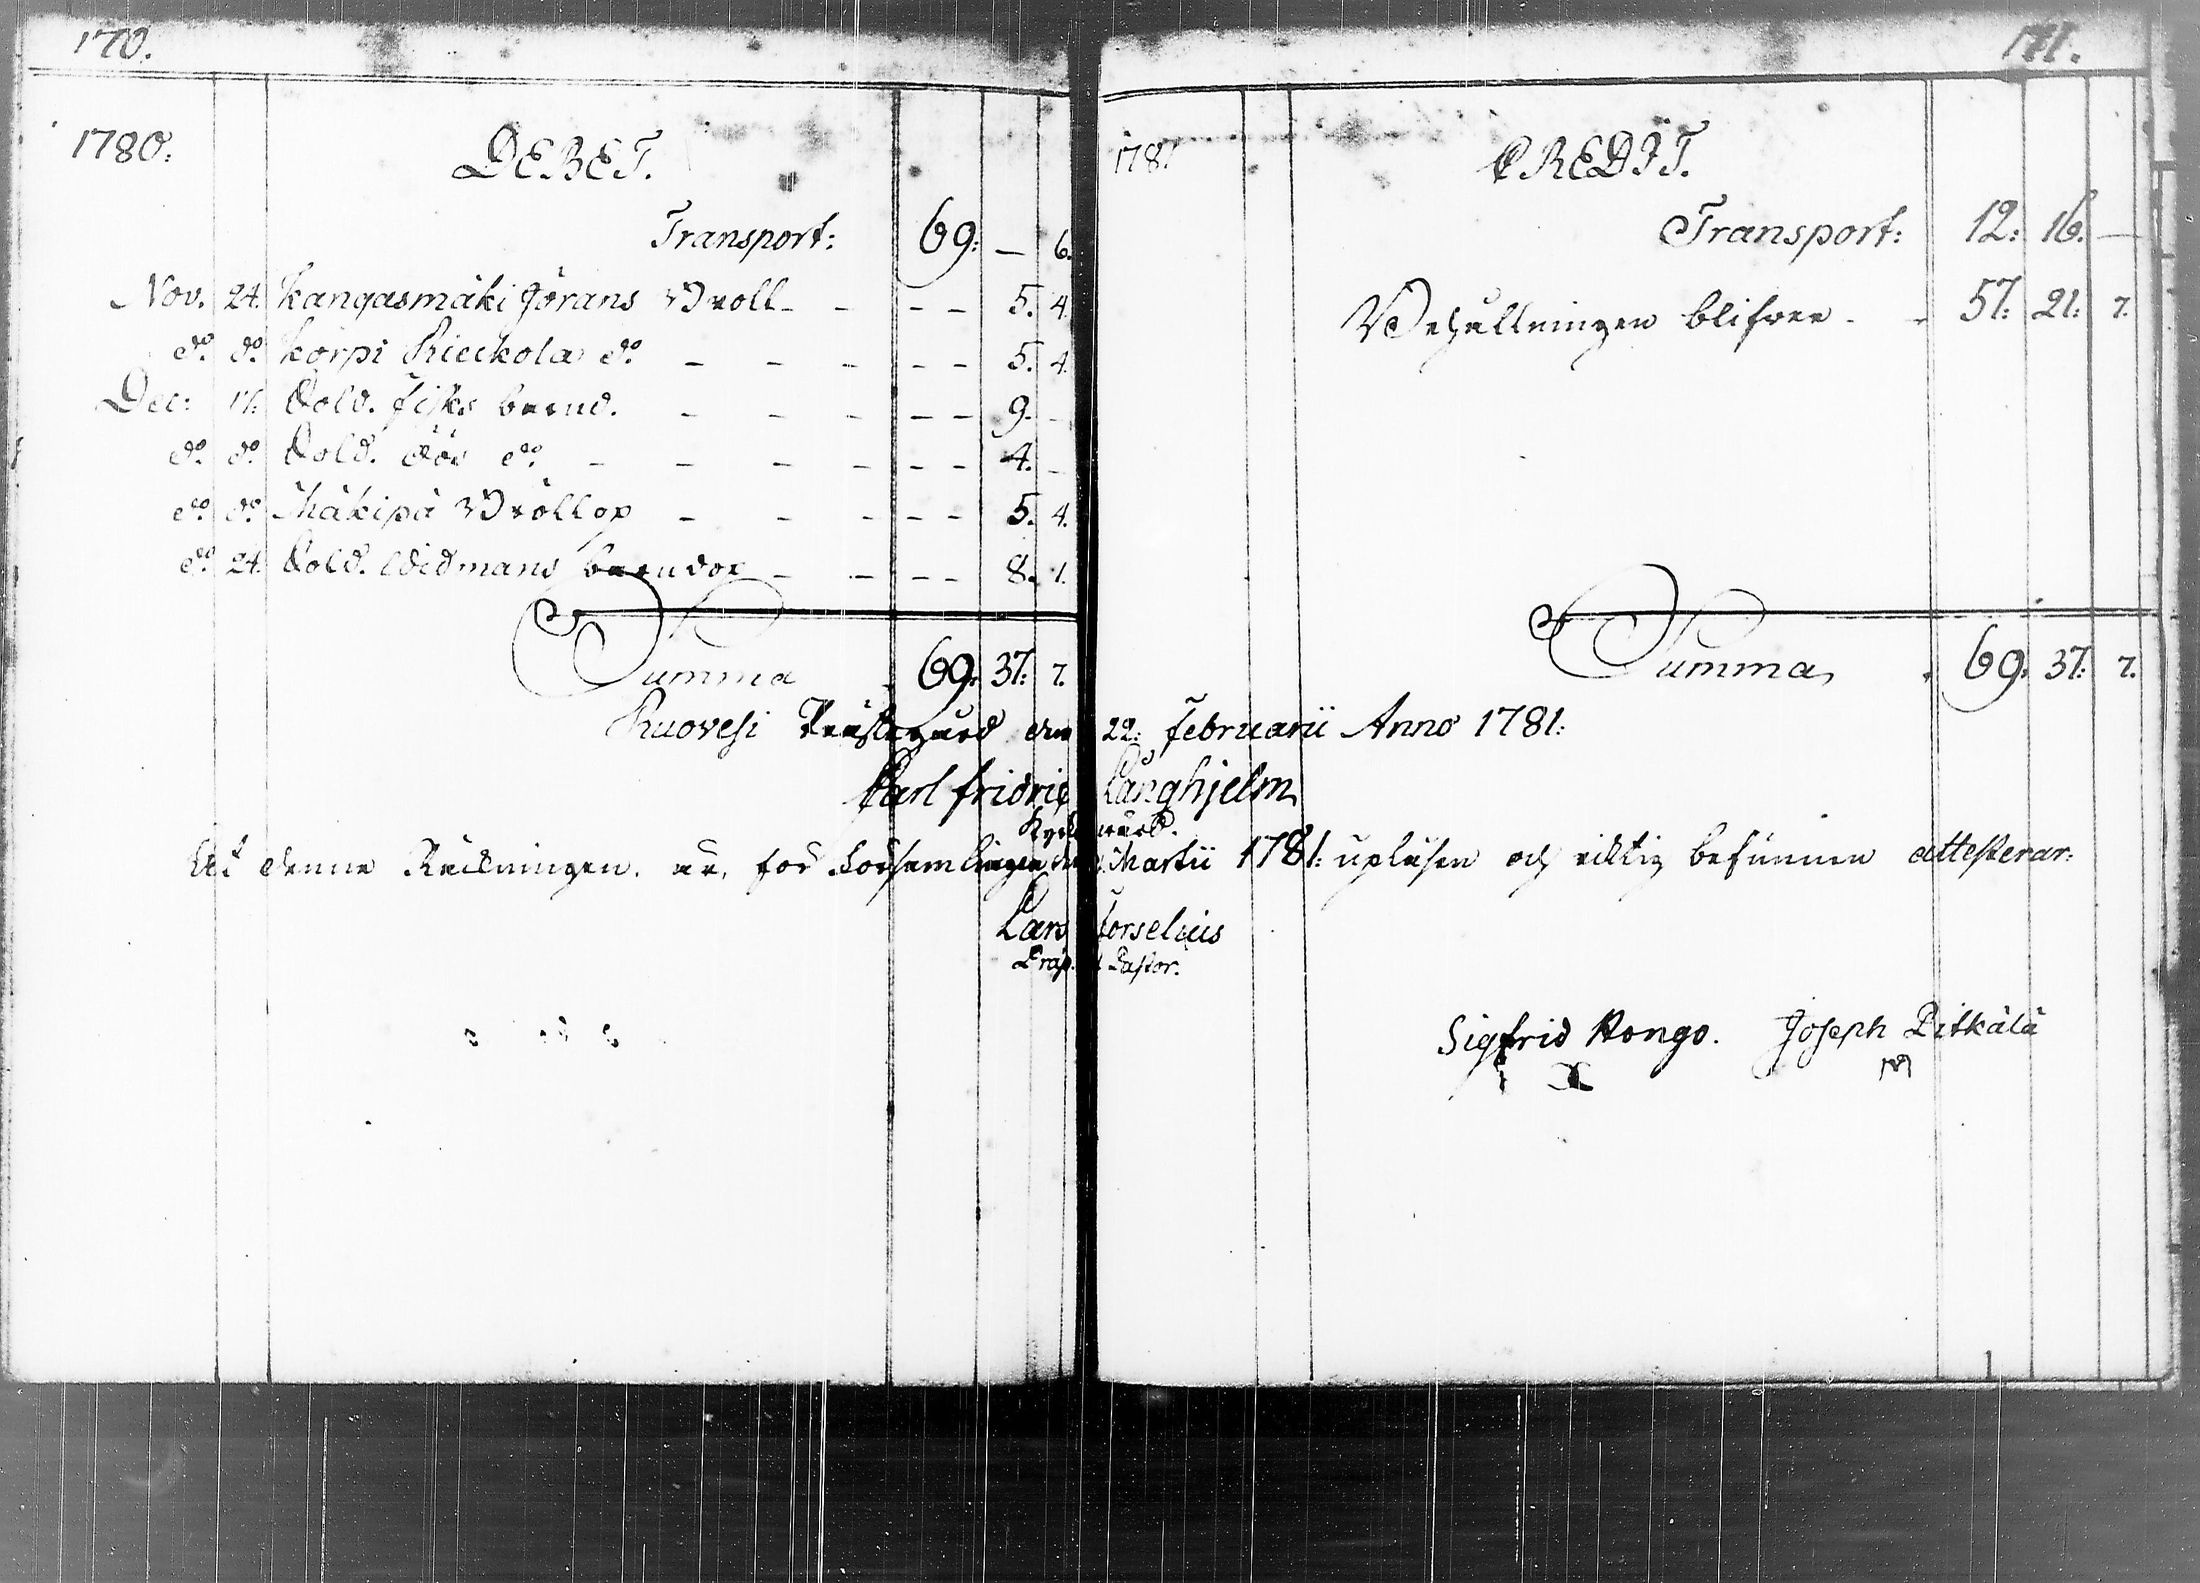 170.
1780.
DEBET.
Transport: 69: — 6.
Nov. 24. Kangasmäki Jörans Bröll - - - - 5. 4.
do. do. Korpi Rieckola do. - - - - - 5. 4.
Dec: 17. Sold. Fisks barnd. - - - - - 9. -
do. do. Sold. Törs do. - - - - - - 4. -
do. do. Mäkipä Bröllop - - - - - 5. 4.
do. 24. Sold. Widmans barndop - - - - 8. 1.
Summa 69: 37: 7.
171.
1781
CREDIT.
Transport: 12: 16. —
Behållningen blifver - - 57: 21: 7.
Summa 69: 37: 7.
Ruovesi Prästegård den 22: Februarii Anno 1781:
Carl Fridric Långhjelm
Kyrkovärd.
At denne Räkningen är för Församlingen Martii 1781: upläsen och riktig befunnen attesterar:
Lars Forselius
Præp. et Pastor.
Sigfrid Hongo. Joseph Pitkälä